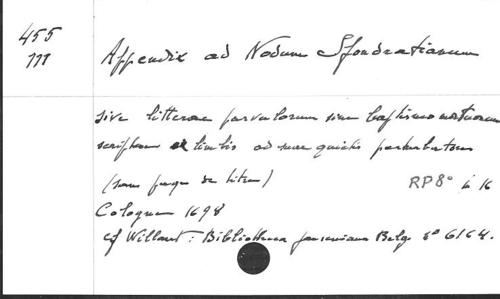 455
111
Appendix ad Nodum Sfondratianum
sive litterae parvulorum sine baptismo mortuorum
scriptae e limbis ad suae quietis perturbatores
(sans page de titre) RP 8° à 16
Cologne 1698
cf Willaert: Bibliotheca janseniana Belg. n° 6164.